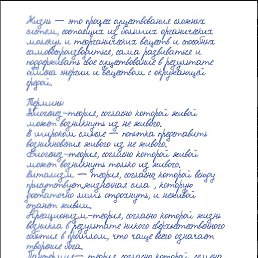 Жизнь — это процесс существования сложных
систем, состоящих из больших органических
молекул и неорганических веществ и способных
самовоспроизводиться, саморазвиваться и
поддерживать свое существование в результате
обмена энергии и веществом с окружающей
средой.
Термины
Абиогенез-теория, согласно которой живой
может возникнуть из не живого.
В широком смысле — попытка представить
возникновения живого из не живого.
Биогенез-теория, согласно которой живой
может возникнуть только из живого.
Витализм — теория, согласно которой всюду
присутствует жизненная сила, которую
достаточно лишь вдохнуть, и неживой
станет живым.
Креационизм.-теория, согласно которой жизнь
возникла в результате некого сверхъестественного
события в прошлом, что чаще всего означает
творение бога.
Панспермия — теория, согласно которой